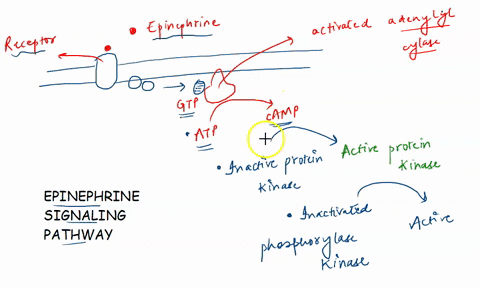 Epinephrine
Receptor
activated adenylyl
cylase
GTP
ATP
cAMP
Inactive protein
kinase
Active protein
kinase
Inactivated
phosphorylase
kinase
Active
EPINEPHRINE
SIGNALING
PATHWAY